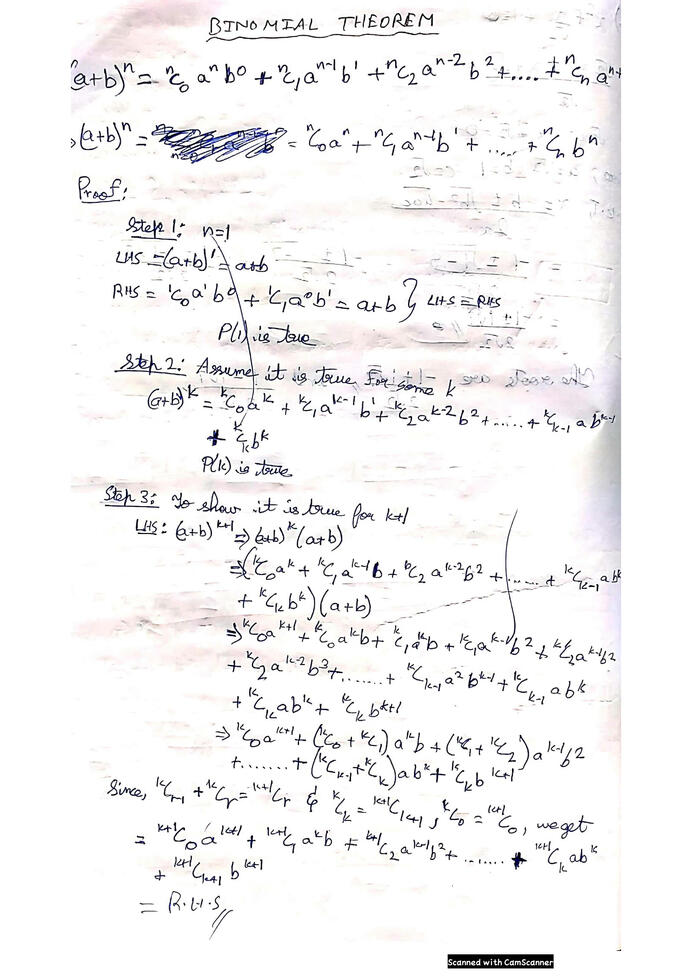 BINOMIAL THEOREM
(a+b)ⁿ = ⁿC₀ aⁿb⁰ + ⁿC₁aⁿ⁻¹b¹ + ⁿC₂aⁿ⁻²b² + .... + ⁿCₙ aⁿ⁺
(a+b)ⁿ = = ⁿC₀aⁿ + ⁿC₁aⁿ⁻¹b¹ + ..... + ⁿCₙbⁿ
Proof:
Step 1: n=1
LHS = (a+b)¹ = a+b
RHS = ¹C₀a¹b⁰ + ¹C₁a⁰b¹ = a+b } LHS = RHS
P(1) is true
Step 2: Assume it is true for some k
(a+b)ᵏ = ᵏC₀aᵏ + ᵏC₁aᵏ⁻¹b¹ + ᵏC₂aᵏ⁻²b² + ...... + ᵏCₖ₋₁abᵏ⁻¹
+ ᵏCₖbᵏ
P(k) is true
Step 3: To show it is true for k+1
LHS: (a+b)ᵏ⁺¹ ⇒ (a+b)ᵏ(a+b)
⇒ (ᵏC₀aᵏ + ᵏC₁aᵏ⁻¹b + ᵏC₂aᵏ⁻²b² + ...... + ᵏCₖ₋₁abᵏ
+ ᵏCₖbᵏ)(a+b)
⇒ ᵏC₀aᵏ⁺¹ + ᵏC₀aᵏb + ᵏC₁aᵏb + ᵏC₁aᵏ⁻¹b² + ᵏC₂aᵏ⁻¹b²
+ ᵏC₂aᵏ⁻²b³ + ....... + ᵏCₖ₋₁a²bᵏ⁻¹ + ᵏCₖ₋₁abᵏ
+ ᵏCₖabᵏ + ᵏCₖbᵏ⁺¹
⇒ ᵏC₀aᵏ⁺¹ + (ᵏC₀ + ᵏC₁)aᵏb + (ᵏC₁ + ᵏC₂)aᵏ⁻¹b²
+ ....... + (ᵏCₖ₋₁ + ᵏCₖ)abᵏ + ᵏCₖbᵏ⁺¹
Since, ᵏCᵣ₋₁ + ᵏCᵣ = ᵏ⁺¹Cᵣ & ᵏCₖ = ᵏ⁺¹Cₖ₊₁, ᵏC₀ = ᵏ⁺¹C₀, we get
= ᵏ⁺¹C₀aᵏ⁺¹ + ᵏ⁺¹C₁aᵏb + ᵏ⁺¹C₂aᵏ⁻¹b² + ....... + ᵏ⁺¹Cₖabᵏ
+ ᵏ⁺¹Cₖ₊₁bᵏ⁺¹
= R.H.S //
Scanned with CamScanner